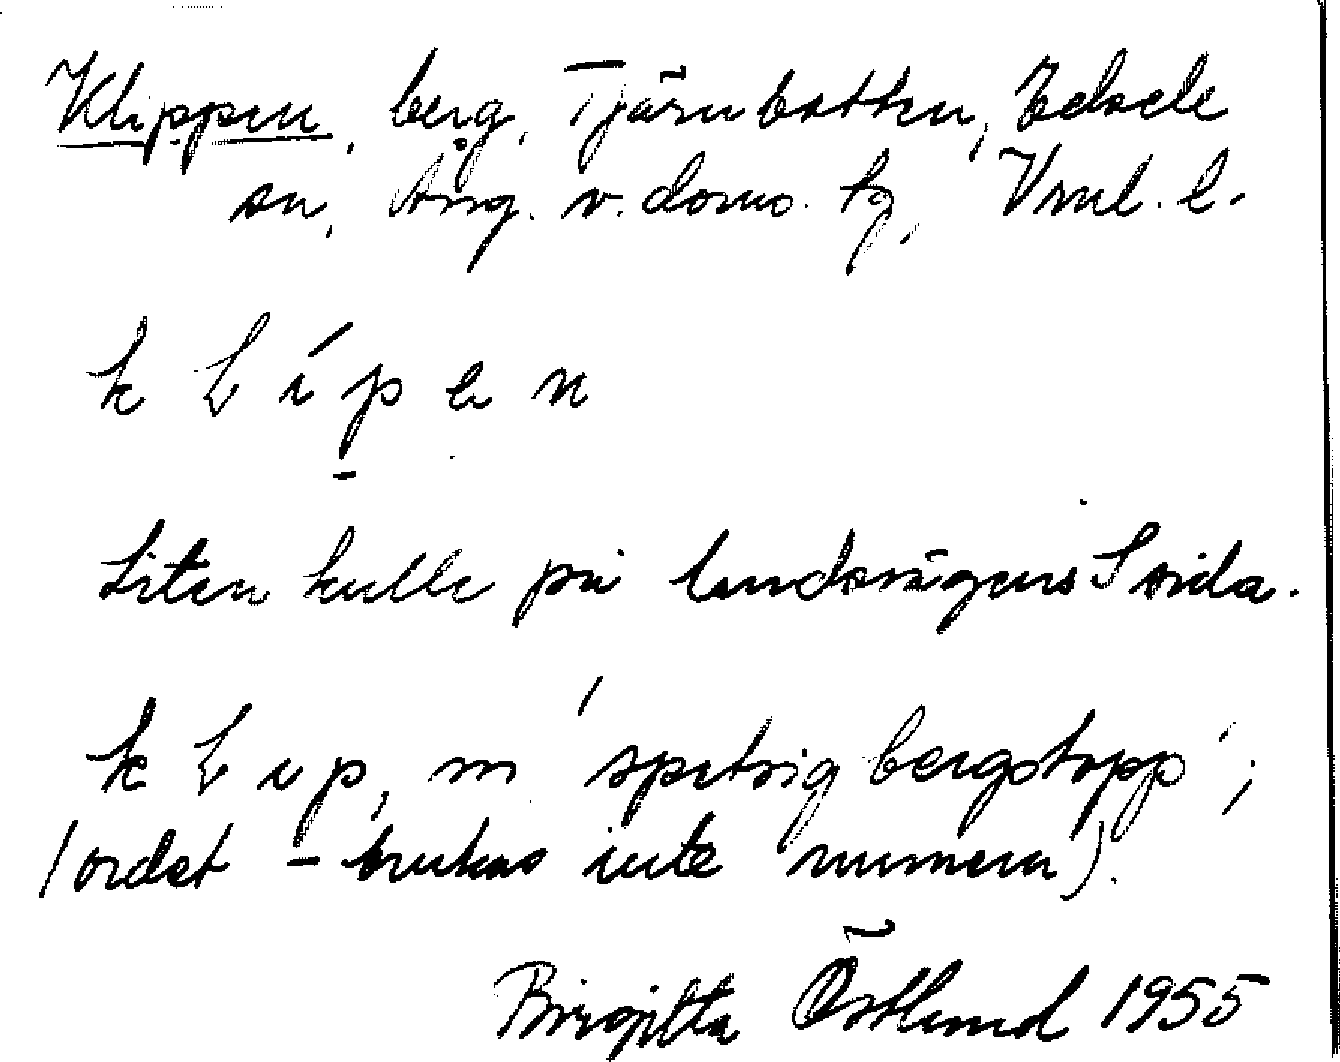 Klippen, berg, Tjärnbotten, Edsele
sn, Ång. v. doms. tg, Vnl. l.
k L í p e n
Liten kulle på landsvägens S sida.
k L i p, m 'spetsig bergstopp';
(ordet – brukas inte numera).
Birgitta Östlund 1955